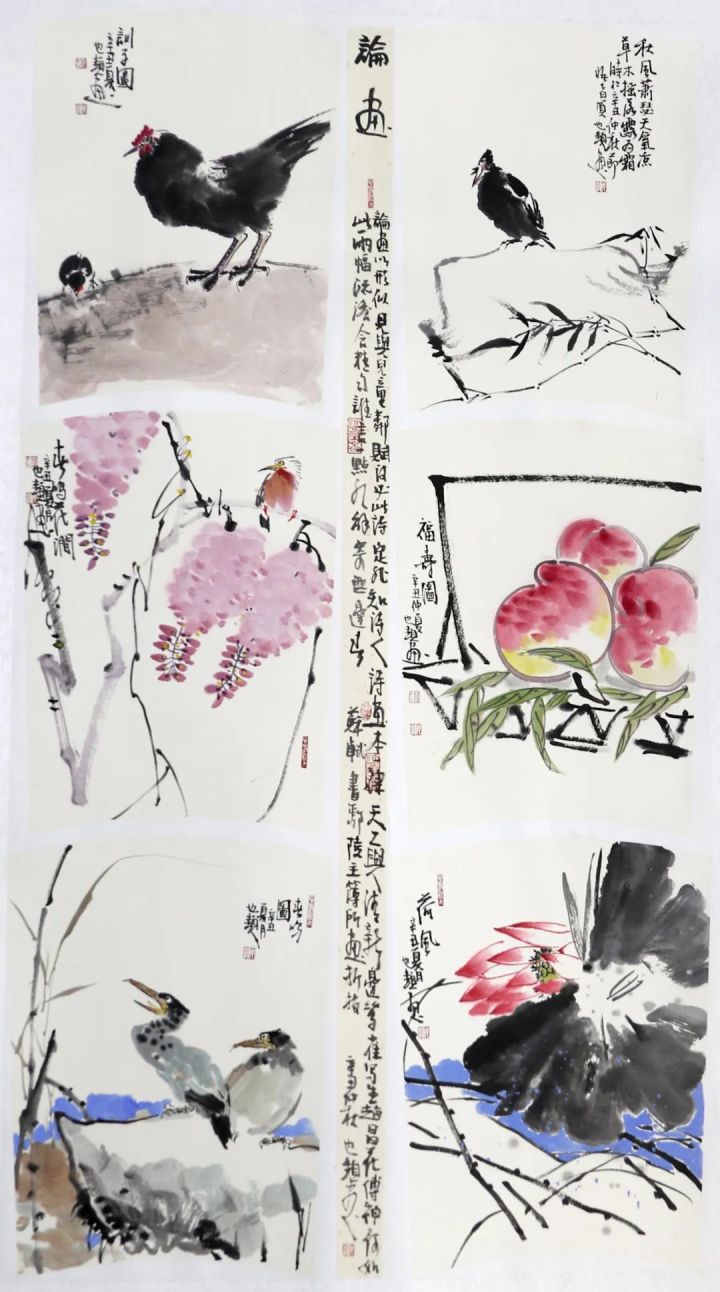 訓子圖
辛丑夏
論畫
秋風蕭瑟天氣涼
草木搖落露為霜
時於辛丑仲秋節
論畫以形似見與兒童鄰賦詩必此詩定非知詩人詩畫本一律天工與清新邊鸞雀寫生趙昌花傳神何如
此兩幅疏澹含精勻誰言一點紅解寄無邊春 蘇軾書鄢陵主簿所畫折枝 辛丑仲秋
春鳴花澗
辛丑夏月
福壽圖
辛丑仲夏
春吟
圖
辛丑
夏月
荷風
辛丑夏月